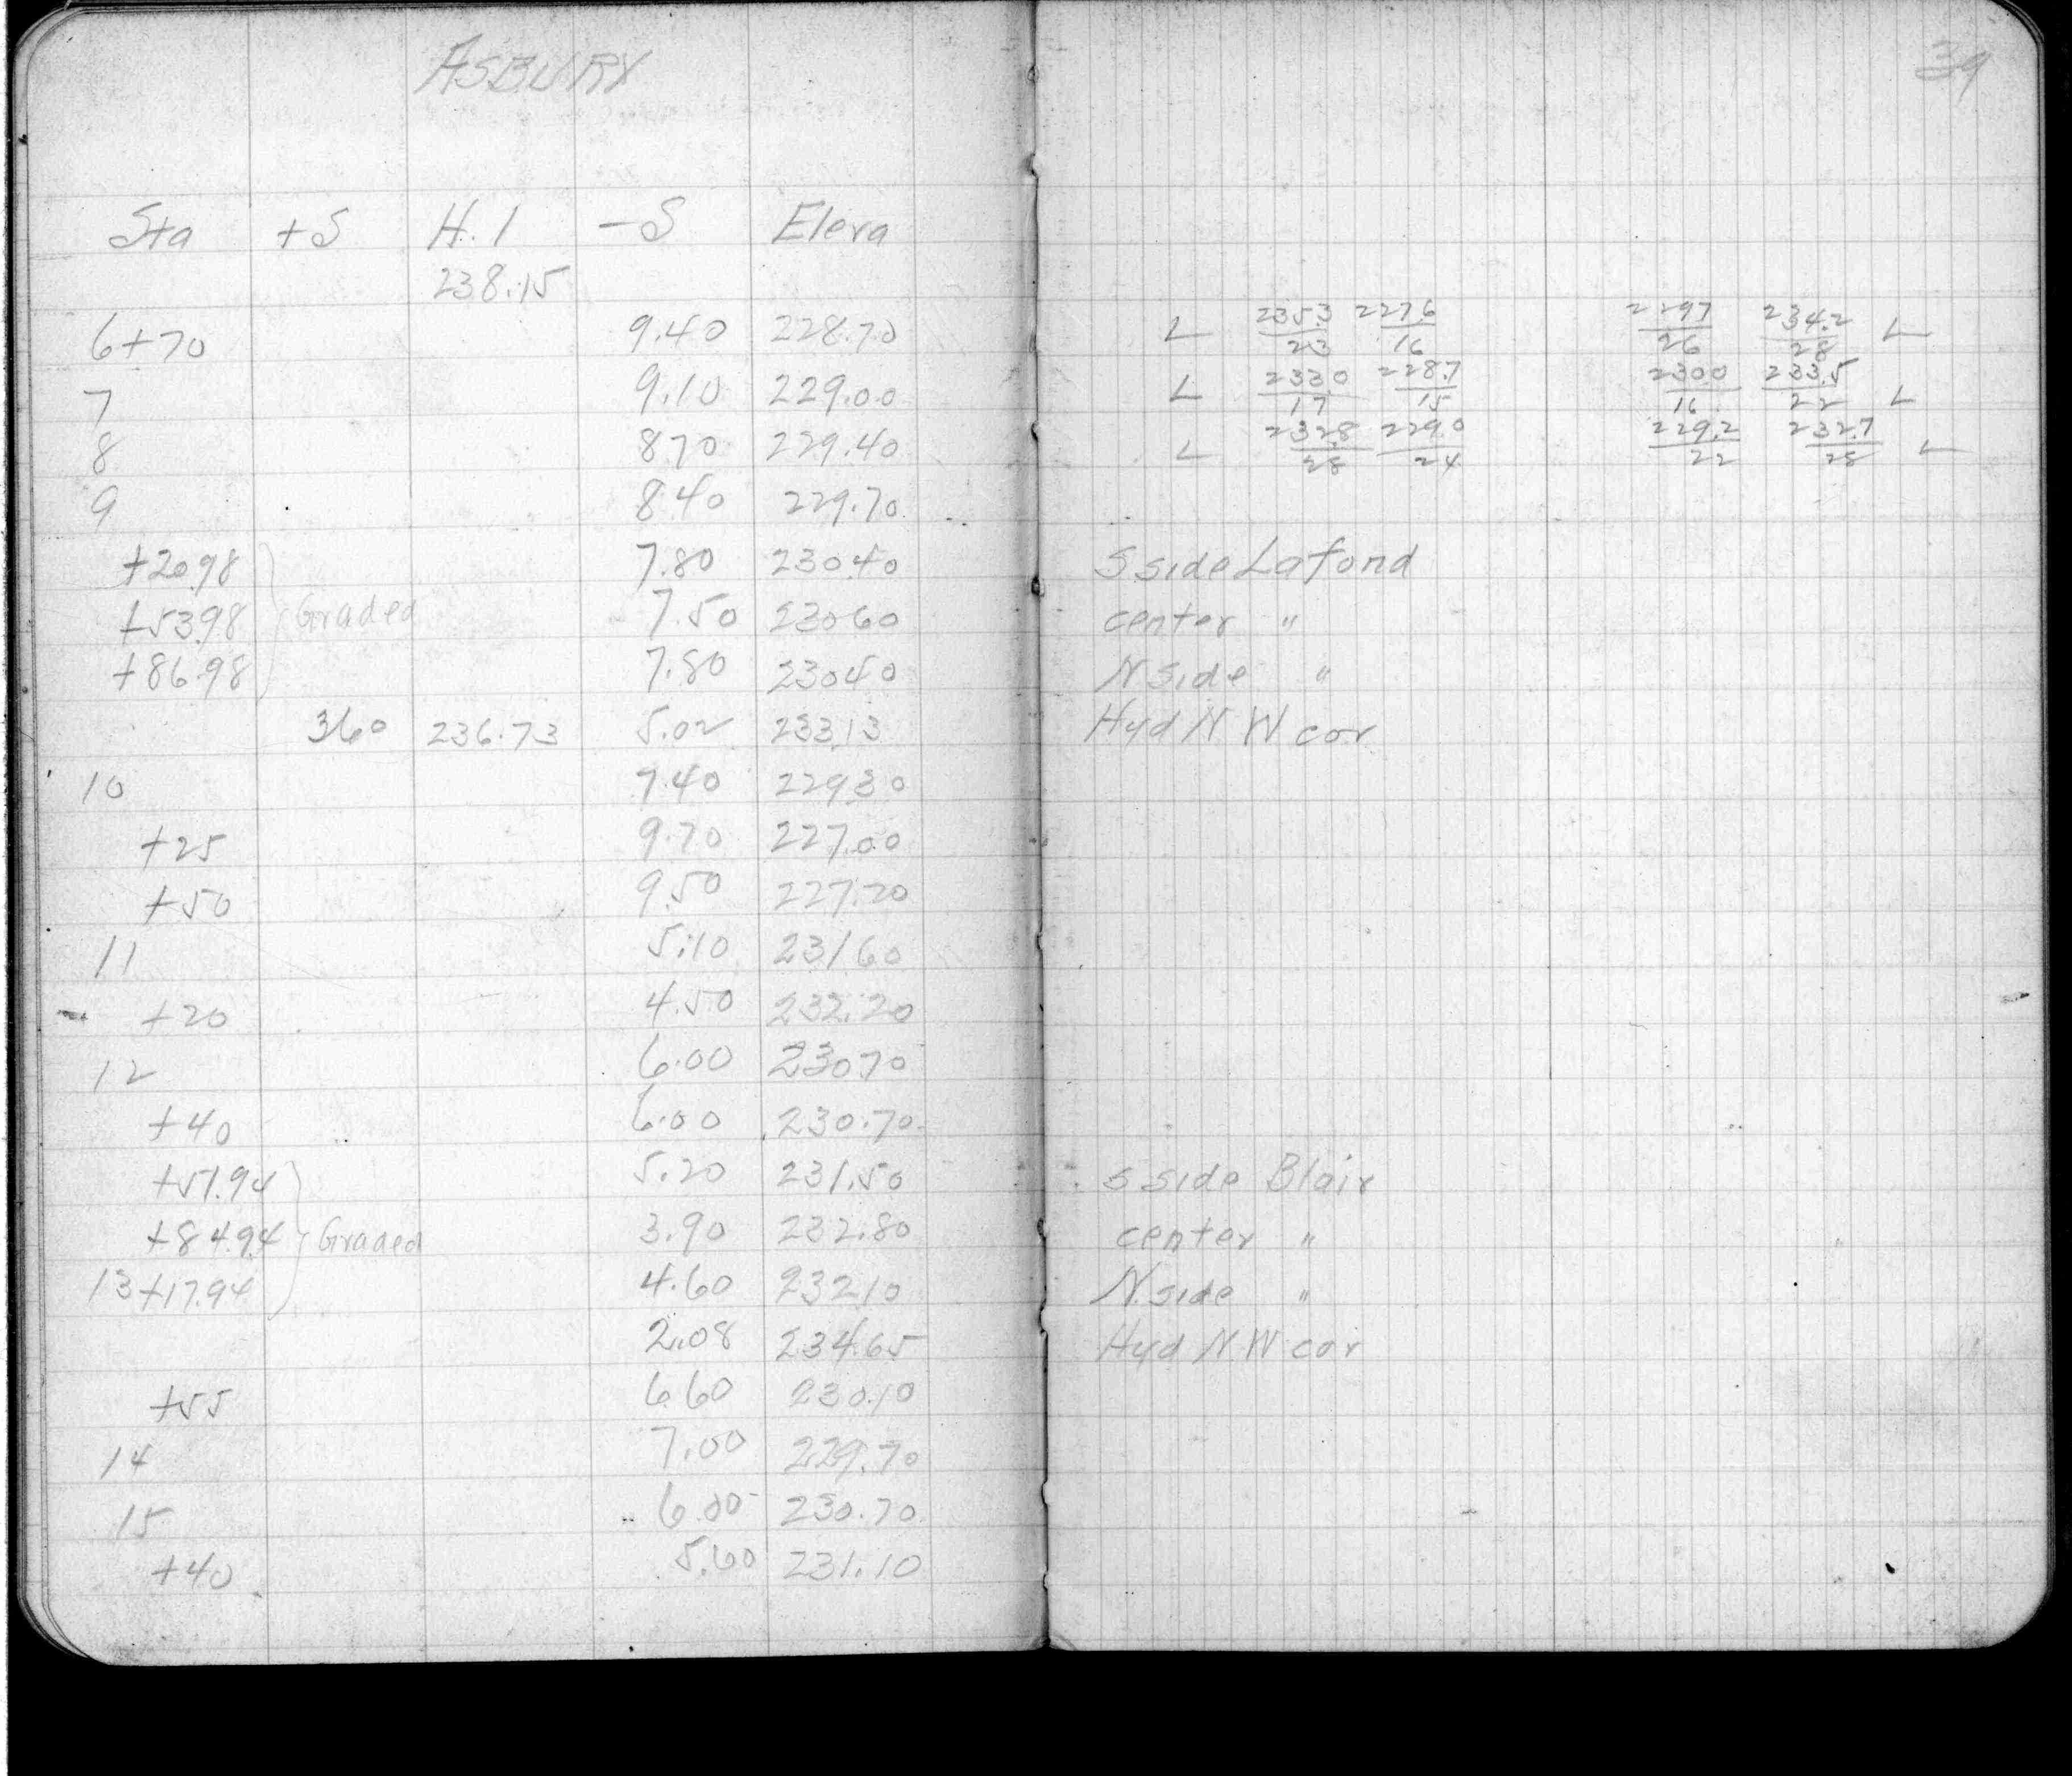 ASBURY 39
Sta +S H.I -S Eleva
238.15
6+70 9.40 228.70 L 235.3/23 227.6/16 229.7/26 234.2/28 L
7 9.10 229.00 L 233.0/17 228.7/15 230.0/16 233.5/22 L
8 8.70 229.40 L 232.8/28 229.0/24 229.2/22 232.7/28 L
9 8.40 229.70
+20.98 7.80 230.40 S side Lafond
+53.98 Graded 7.50 230.60 center "
+86.98 7.80 230.40 N side "
3.60 236.73 5.02 233.13 Hyd N W cor
10 7.40 229.30
+25 9.70 227.00
+50 9.50 227.20
11 5.10 231.60
+20 4.50 232.20
12 6.00 230.70
+40 6.00 230.70
+51.94 5.20 231.50 S side Blair
+84.94 Graded 3.90 232.80 center "
13+17.94 4.60 232.10 N. side "
2.08 234.65 Hyd N W cor
+55 6.60 230.10
14 7.00 229.70
15 6.00 230.70
+40 5.60 231.10